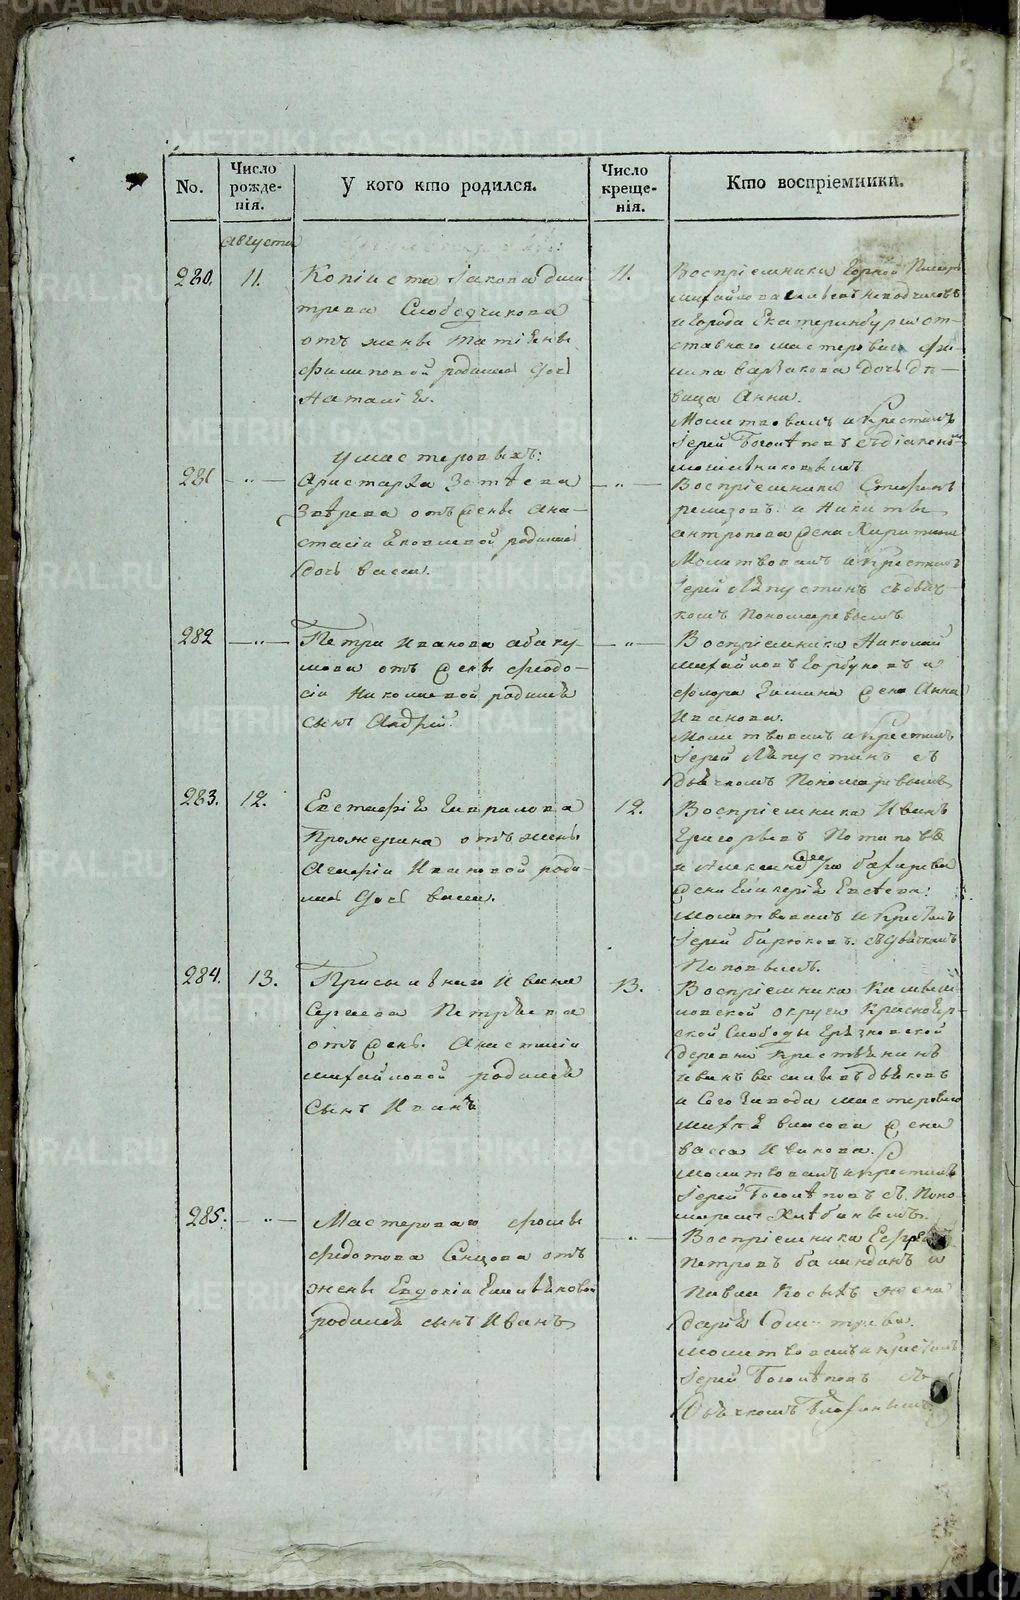 No.
Число рожде- нія.
У кого кто родился.
Число креще- нія.
Кто воспріемники.
Августа
280. 11.
Копіиста Іакова Дми-
трева Слободчикова
отъ жены Татіяны
Филиповой родилась дочь
Наталія.
11.
Воспріемники Горной
Михайло Васильевъ
и города Екатеринбурга от-
ставнаго мастероваго Фи-
липа дочь дѣ-
вица Анна.
Молитвовалъ и крестилъ
Іерей Боголѣповъ съ діакономъ
У мастеровыхъ:
281 — „ —
Аристарха Зотѣева
Звѣрева отъ жены Ана-
стасіи Яковлевой родилась
дочь Васса.
— „ —
Воспріемники Стефанъ
Ремизовъ и Никиты
Антропова жена Харитина
Молитвовалъ и крестилъ
Іерей Ляпустинъ съ дьяч-
комъ Пономаревымъ
282 — „ —
Петра Иванова Абаку-
мова отъ жены Феодо-
сіи Николаевой родился
сынъ Андрей
— „ —
Воспріемники Николай
Михайловъ Горбуновъ и
Флора Зимина жена Анна
Иванова.
Молитвовалъ и крестилъ
Іерей Ляпустинъ съ
дьячкомъ Пономаревымъ
283. 12.
Евстафія Гаврилова
Прожерина отъ жены
Агафіи Ивановой роди-
лась дочь Васса.
12.
Воспріемники Иванъ
Григорьевъ Потаповъ
жена Гликерія Евсѣева:
Молитвовалъ и крестилъ
Іерей Бирюковъ съ дьячкомъ
Поповымъ.
284. 13.
Присыльнаго Ивана
Сергѣева Петрѣева
отъ жены Анастасіи
Михайловой родился
сынъ Иванъ
13.
Воспріемники Камыш-
ловской округи Краснояр-
ской слободы
деревни крестьянинъ
Иванъ Васильевъ Дьяковъ
и сего завода мастероваго
Власова жена
Васса Иванова.
Молитвовалъ и крестилъ
Іерей Боголѣповъ съ поно-
маремъ Хлѣбинымъ.
285. — „ —
Мастероваго Фомы
Федотова Сенцова отъ
жены Евдокіи Емельяновой
родился сынъ Иванъ
— „ —
Воспріемники
Петровъ Баландинъ и
Павла Косыхъ жена
Дарья Дмитрева.
Молитвовалъ и крестилъ
Іерей Боголѣповъ съ
дьячкомъ
METRIKI.GASO-URAL.RU